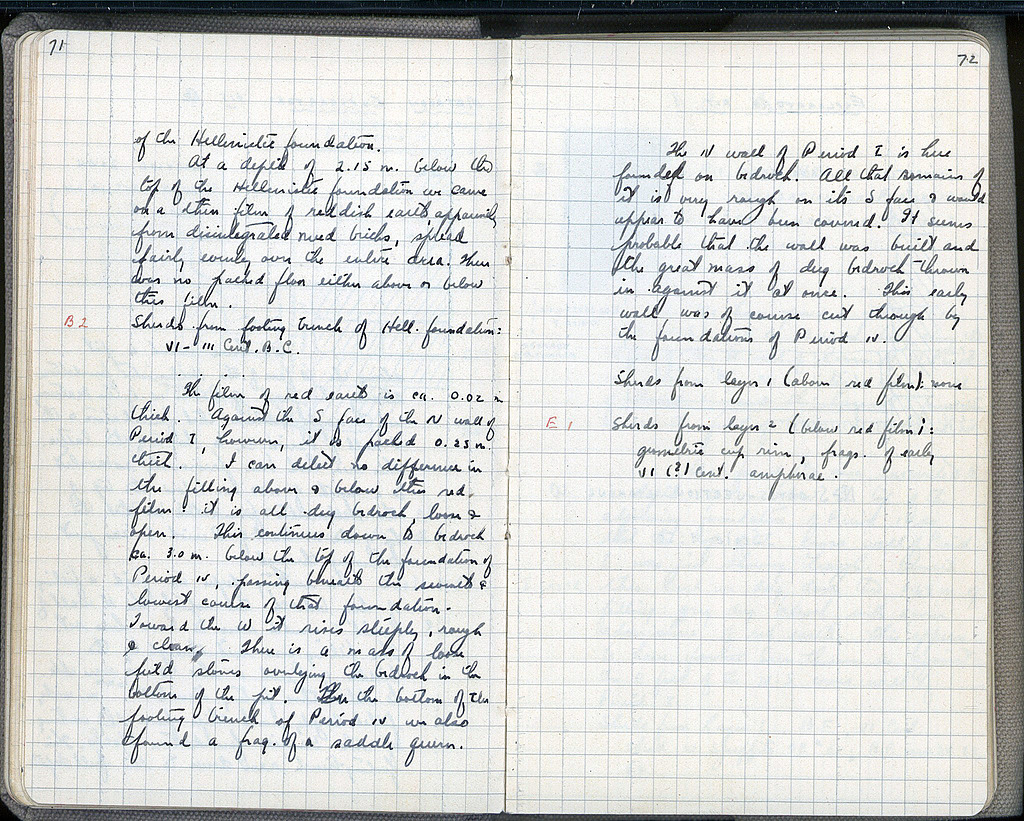 71
of the Hellenistic foundation.
At a depth of 2.15 m. below the
top of the Hellenistic foundation we came
on a thin film of reddish earth apparently
from disintegrated mud bricks, spread
fairly evenly over the entire area. There
was no packed floor either above or below
this film.
B 2 Sherds from footing trench of Hell. foundation:
VI - III Cent. B.C.
The film of red earth is ca. 0.02 m
thick. Against the S face of the N wall of
Period I, however, it is packed 0.25 m.
thick. I can detect no difference in
the filling above & below this red
film: it is all dug bedrock, loose &
open. This continues down to bedrock
ca. 3.0 m. below the top of the foundation of
Period IV, passing beneath the seventh &
lowest course of that foundation.
Toward the W it rises steeply, rough
& clean. There is a mass of loose
field stones overlying the bedrock in the
bottom of the pit. the bottom of the
footing trench of Period IV we also
found a frag. of a saddle quern.
72
The N wall of Period I is here
founded on bedrock. All that remains of
it is very rough on its S face & would
appear to have been covered. It seems
probable that the wall was built and
the great mass of dug bedrock thrown
in against it at once. This early
wall was of course cut through by
the foundations of Period IV.
Sherds from layer 1 (above red film): none
E 1 Sherds from layer 2 (below red film):
geometric cup rim, frags. of early
VI (?) Cent. amphorae.